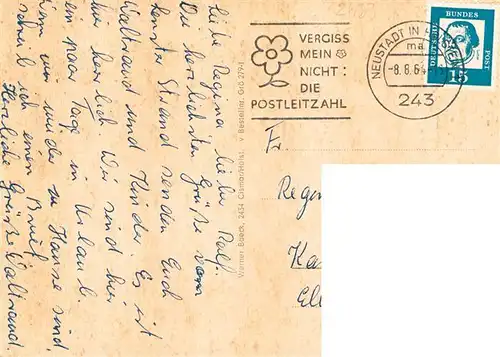 Liebe Regina, lieber Ralf.
Die herzlichsten Grüße vom
Strand senden Euch
Waltraud und Kinder. Es ist
hier herrlich. Wir sind hier
ein paar Tage in Urlaub.
Wenn wir wieder zu Hause sind,
schreibe ich einen Brief.
Herzliche Grüße Waltraud.
Werner Baeck, 2434 Cismar/Holst. v. Bestellnr. Grö 279-1
VERGISS
MEIN
NICHT:
DIE
POSTLEITZAHL
NEUSTADT IN HOLSTEIN
ma
-8.8.6
243
DEUTSCHE
BUNDES
POST
15
Fr.
Regin
Ka
El